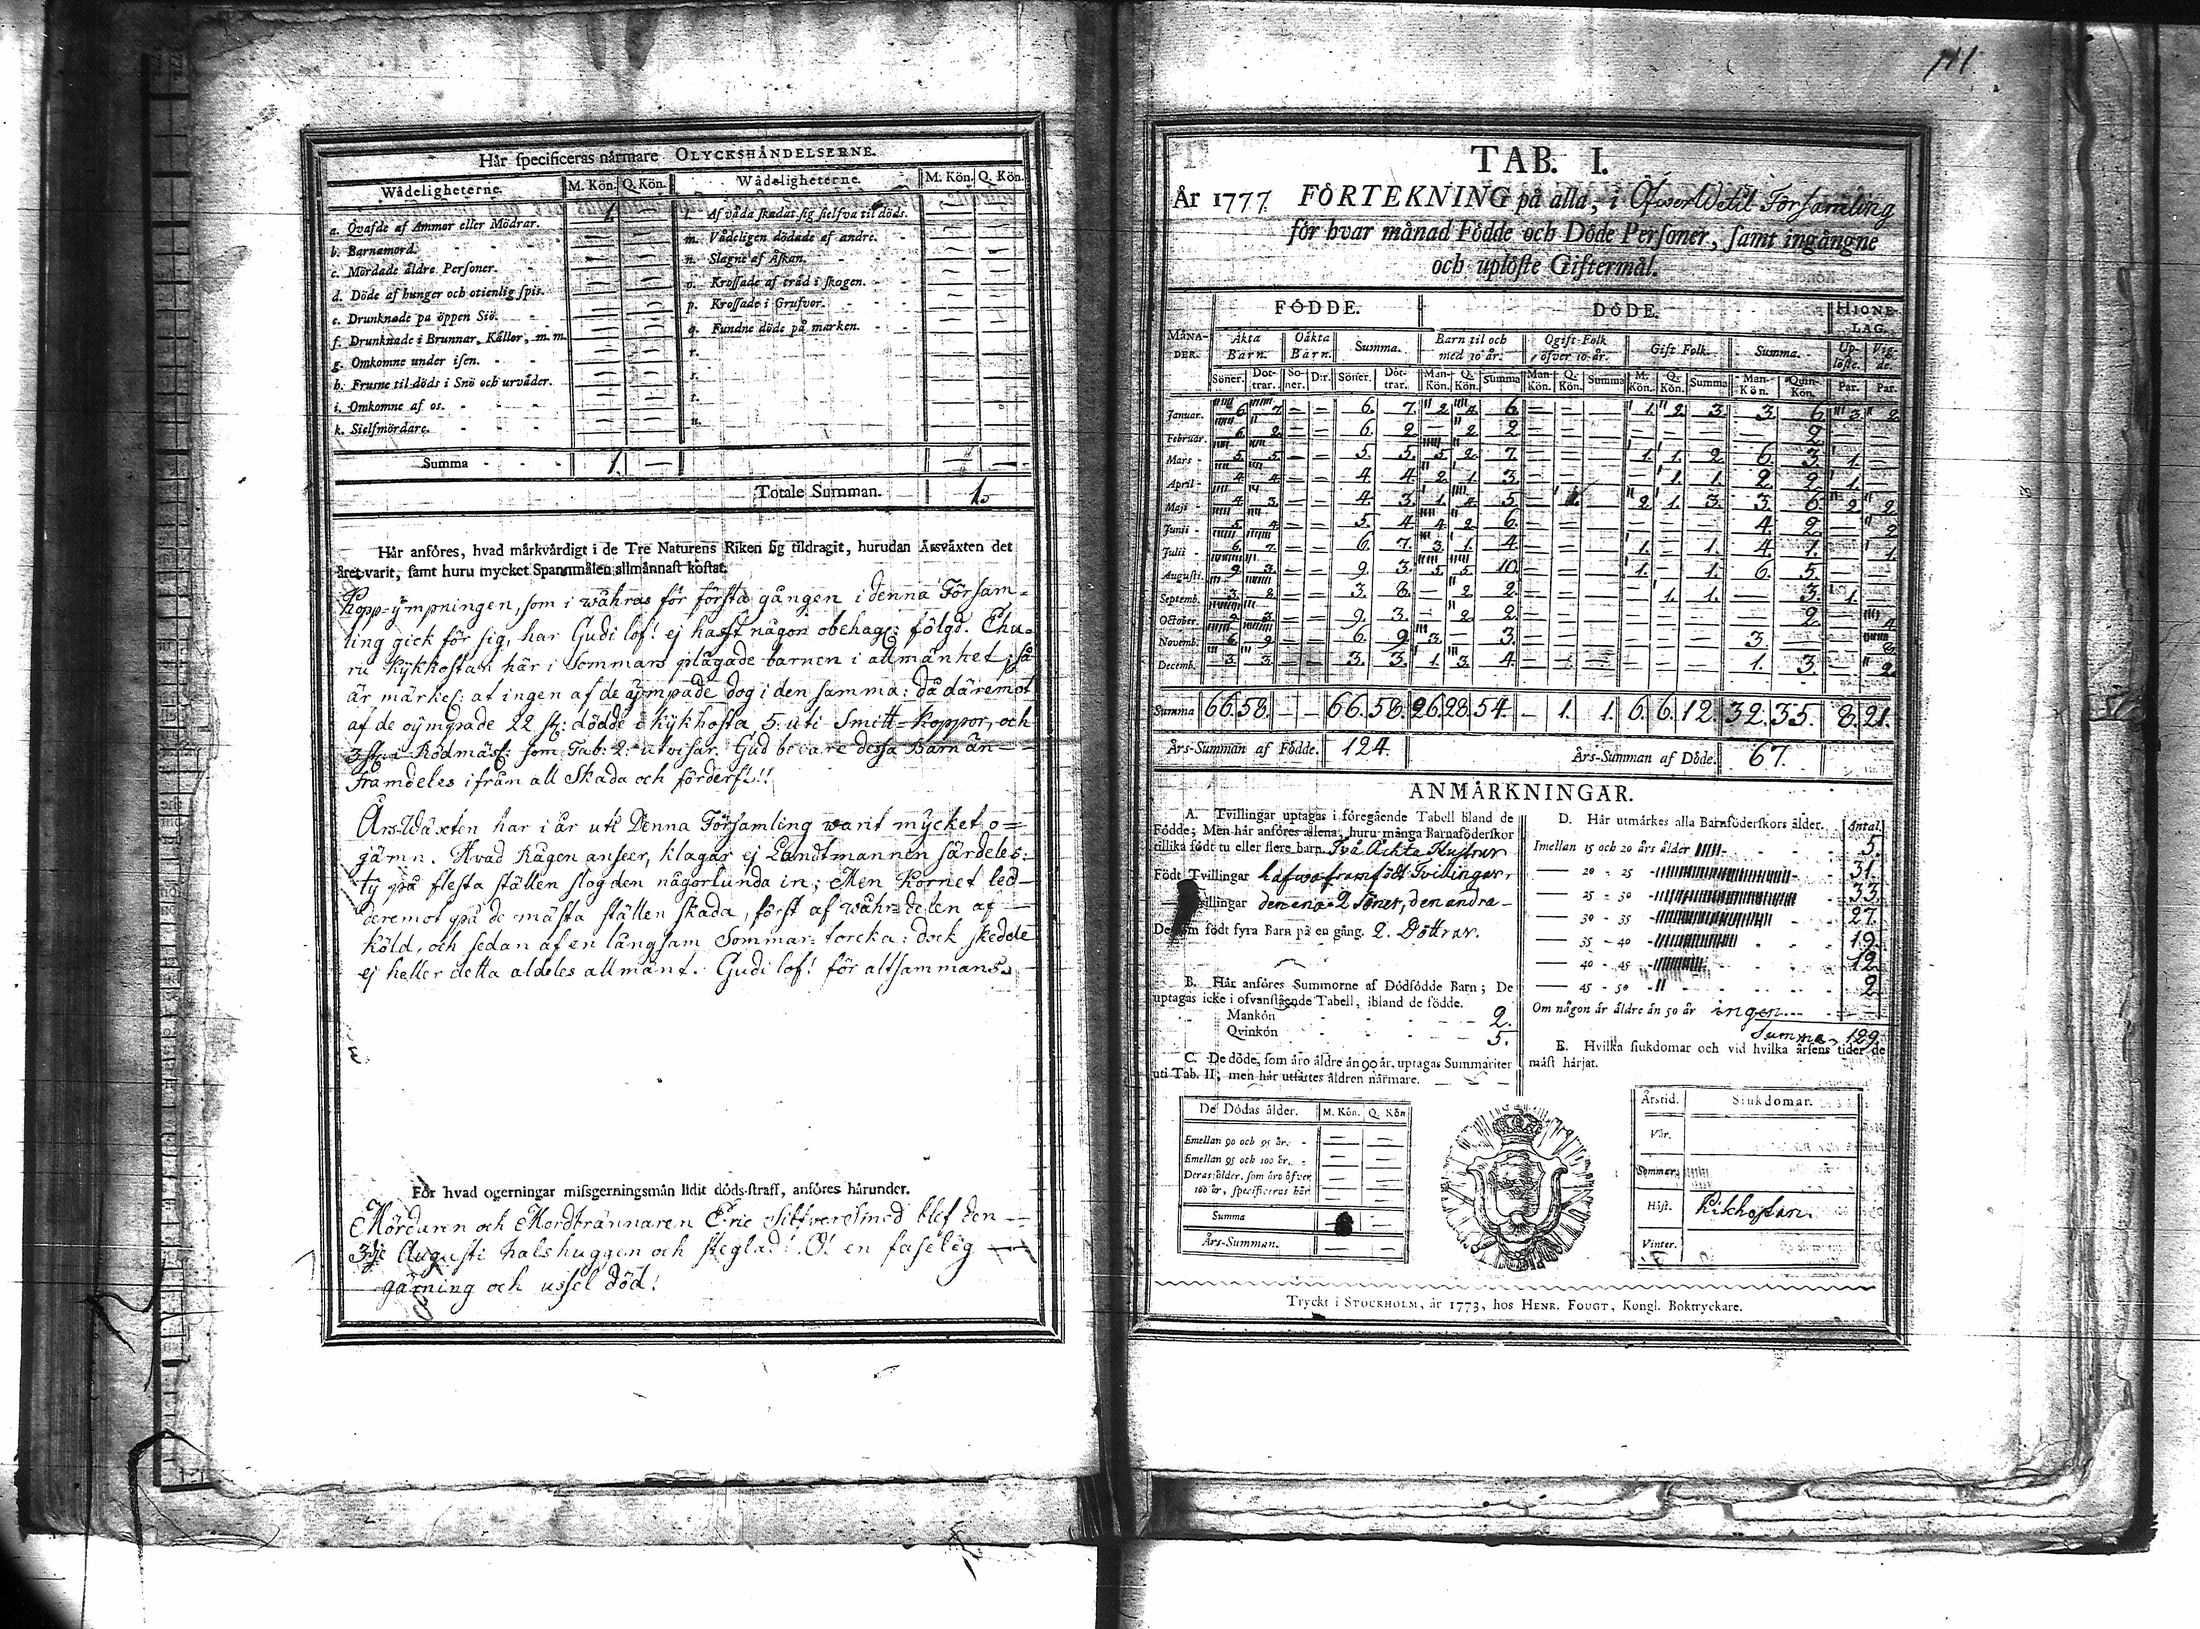 Här specificeras närmare OLYCKSHÄNDELSERNE.
Wådeligheterne. M. Kön. Q. Kön. Wådeligheterne. M. Kön. Q. Kön.
a. Qvafde af Ammor eller Mödrar. 1. — l. Af våda skadat sig sielfva til döds. — —
b. Barnamord. — — m. Vådeligen dödade af andre. — —
c. Mördade äldre Personer. — — n. Slagne af Åskan. — —
d. Döde af hunger och otienlig spis. — — o. Krossade af träd i skogen. — —
e. Drunknade på öppen Siö. — — p. Krossade i Grufvor. — —
f. Drunknade i Brunnar, Källor, m. m. — — q. Fundne döde på marken. — —
g. Omkomne under isen. — — r.
h. Frusne til döds i Snö och urväder. — — s.
i. Omkomne af os. — — t.
k. Sielfmördare. — — u.
Summa 1. — — —
Totale Summan. 1.
Här anföres, hvad märkvärdigt i de Tre Naturens Riken sig tildragit, hurudan Årsväxten det
året varit, samt huru mycket Spannmålen allmännast kostat.
Kopp-ympningen, som i wåhras för första gången i denna Försam-
ling gick för sig, har Gudi lof! ej haft någon obehagl: fölgd. Ehu-
ru Kykhostan här i Sommars plågade barnen i allmänhet, så
är märkel: at ingen af de ympade dog i den samma: då däremot
af de oympade 22 st: dödde i kykhosta 5: uti Smitt-Koppor, och
3 st: i Rödmäsl: som Tab: 2: utvisar. Gud bevare dessa Barn än-
framdeles ifrån all Skada och förderf!!
Års-Wäxten har i år uti Denna Församling warit mycket o=
jämn. Hvad Rågen anseer, klagar ej Landtmannen särdeles:
ty på flesta ställen slog den någorlunda in; Men Kornet led
deremot på de mästa ställen skada, först af wåhrs delen af
köld, och sedan af en långsam Sommar-torcka: dock skedde
ej heller detta aldeles allmänt. Gudi lof! för altsammans.
För hvad ogerningar missgerningsmän lidit döds-straff, anföres härunder.
Mördaren och Mordbrännaren Eric Silfversmed blef den
3dje Augusti halshuggen och steglad! O! en faselig
gärning och ussel död!
111
TAB. I.
År 1777. FÖRTEKNING på alla, i Öfwer Wetil Församling
för hvar månad Födde och Döde Personer, samt ingångne
och uplöste Giftermål.
FÖDDE. DÖDE. HIONE-LAG.
MÅNA-DER. Äkta Barn. Oäkta Barn. Summa. Barn til och med 10 år. Ogift Folk öfver 10 år. Gift Folk. Summa. Up-löste. Vig-de.
Söner. Döt-trar. So-ner. D:r. Söner. Döt-trar. Man-Kön. Q. Kön. Summa Man-Kön. Q. Kön. Summa M. Kön. Q. Kön. Summa Man-Kön. Quin-Kön. Par. Par.
Januar. 6. 7. — — 6. 7. 2. 4. 6. — — — 1. 2. 3. 3. 6. 3. 2.
Februar. 6. 2. — — 6. 2. — 2. 2. — — — — — — — 2. — —
Mars 5. 5. — — 5. 5. 5. 2. 7. — — — 1. 1. 2. 6. 3. 1. —
April 4. 4. — — 4. 4. 2. 1. 3. — — — — 1. 1. 2. 2. 1. —
Maji 4. 3. — — 4. 3. 1. 4. 5. — 1. 2. 1. 3. 3. 6. 2. 2.
Junii 5. 4. — — 5. 4. 4. 2. 6. — — — — — — 4. 2. — 2.
Julii 6. 7. — — 6. 7. 3. 1. 4. — — — 1. — 1. 4. 1. — 1.
Augusti. 9. 3. — — 9. 3. 5. 5. 10. — — — 1. — 1. 6. 5. — —
Septemb. 3. 8. — — 3. 8. — 2. 2. — — — — 1. 1. — 3. 1. —
October. 9. 3. — — 9. 3. — 2. 2. — — — — — — — 2. — 4.
Novemb. 6. 9. — — 6. 9. 3. — 3. — — — — — — 3. — — 6.
Decemb. 3. 3. — — 3. 3. 1. 3. 4. — — — — — — 1. 3. — 2.
Summa 66. 58. — — 66. 58. 26. 28. 54. — 1. 1. 6. 6. 12. 32. 35. 8. 21.
Års-Summan af Födde. 124. Års-Summan af Döde. 67.
ANMÄRKNINGAR.
A. Tvillingar uptagas i föregående Tabell bland de
Födde; Men här anföres allena, huru många Barnaföderskor
tillika födt tu eller flere barn. Två Äckta Hustrur
Födt Tvillingar hafwa framfödt Tvillingar,
illingar den ena 2 Söner, den andra
De som födt fyra Barn på en gång. 2. Döttrar.
B. Här anföres Summorne af Dödfödde Barn; De
uptagas icke i ofvanstående Tabell, ibland de födde.
Mankön 2.
Qvinkön 5.
C. De döde, som äro äldre än 90 år, uptagas Summariter
uti Tab. II; men här utsättes åldren närmare.
De Dödas ålder. M. Kön. Q. Kön
Emellan 90 och 95 år. — —
Emellan 95 och 100 år. — —
Deras ålder, som äro öfver
100 år, specificeras här — —
Summa —
Års-Summan. — —
D. Här utmärkes alla Barnföderskors ålder. Antal.
Imellan 15 och 20 års ålder 5.
— 20 - 25 31.
— 25 - 30 33.
— 30 - 35 27.
— 35 - 40 19.
— 40 - 45 12.
— 45 - 50 2.
Om någon är äldre än 50 år ingen
Summa 129.
E. Hvilka siukdomar och vid hvilka årsens tider de
mäst härjat.
Årstid. Siukdomar.
Vår.
Sommar.
Höst. Kikhostan.
Vinter.
Tryckt i STOCKHOLM, år 1773, hos HENR. FOUGT, Kongl. Boktryckare.